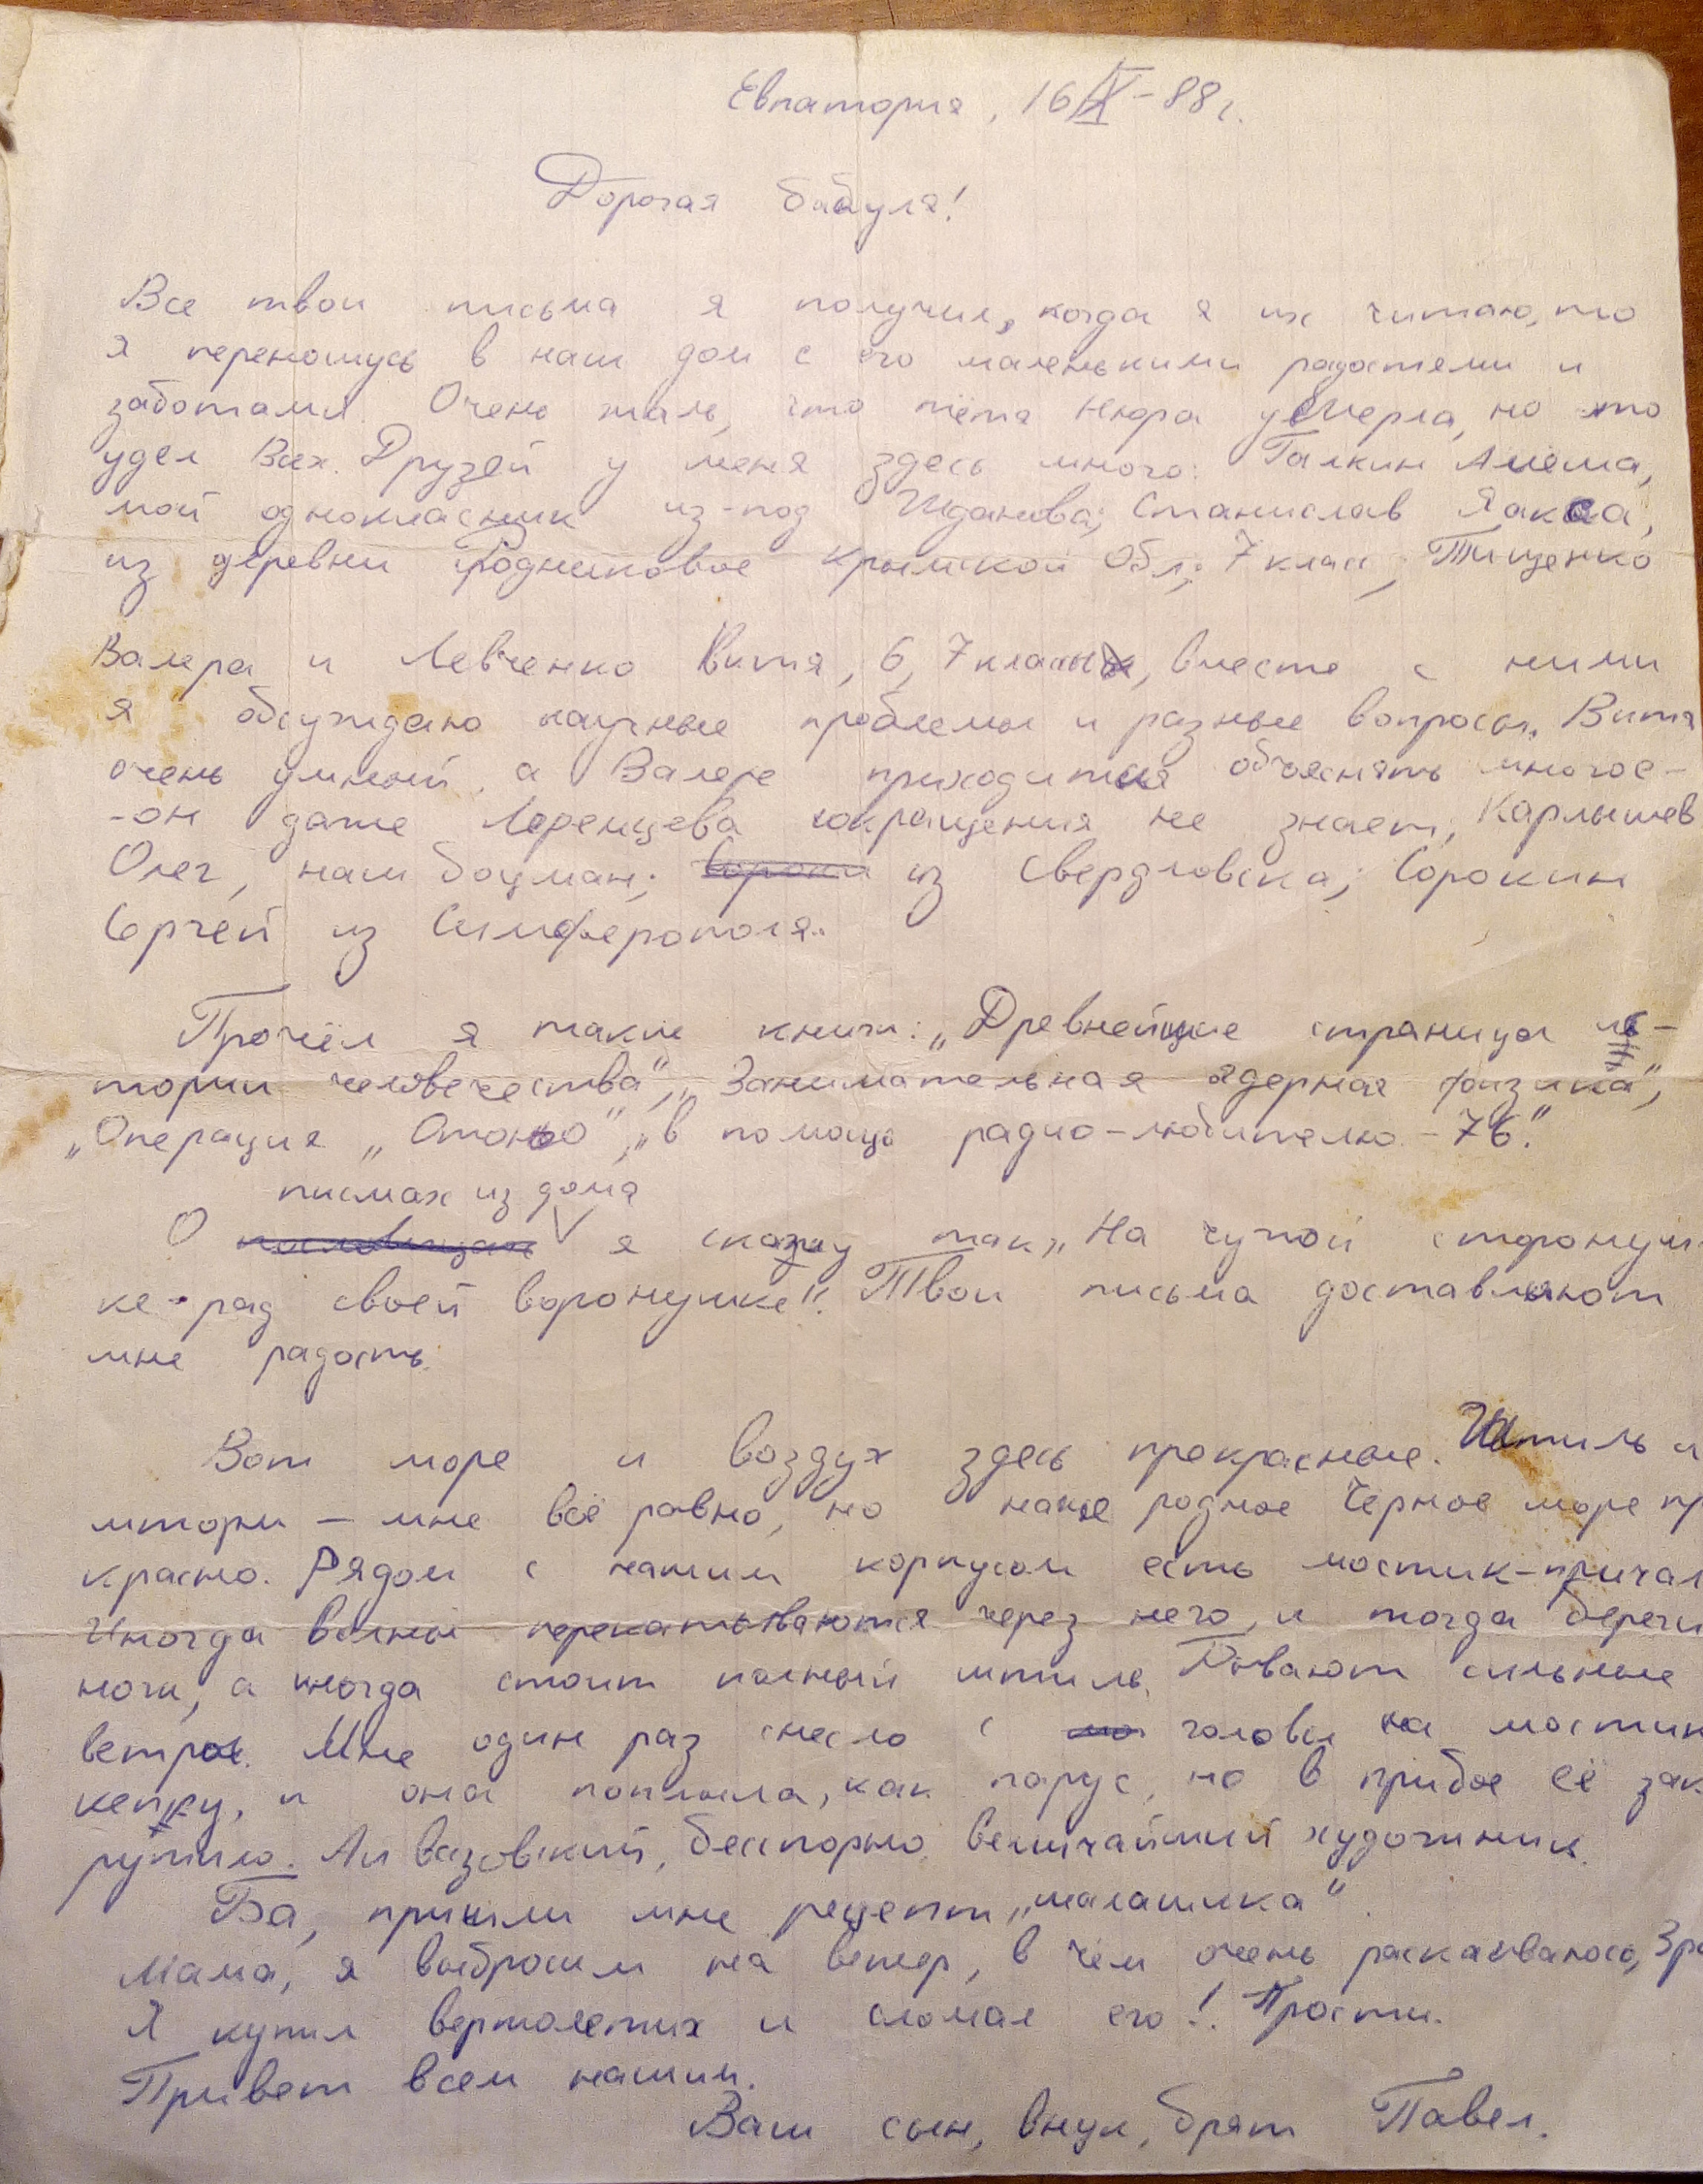 Евпатория, 16/IX-88г.
Дорогая бабуля!
Все твои письма я получил, когда я их читаю, то
я переношусь в наш дом с его маленькими радостями и
заботами. Очень жаль, что тётя Нюра умерла, но это
удел всех. Друзей у меня здесь много: Галкин Алёша,
мой однокласник из-под Жданова; Станислав
из деревни Родниковое Крымской обл., 7 класс; Тищенко
Валера и Левченко Витя, 6, 7 классы, вместе с ними
я обсуждаю научные проблемы и разные вопросы. Витя
очень умный, а Валере приходится объяснять многое-
-он даже Лоренцева сокращения не знает; Карлышев
Олег, наш боцман, из Свердловска; Сорокин
Сергей из Симферополя.
Прочёл я такие книги: „Древнейшие страницы ис-
тории человечества“, „Занимательная ядерная физика“,
„Операция „Отоньо“, „В помощь радио-любителю-76“.
письмах из дома
О пословицах я скажу так „На чужой сторонуш-
ке-рад своей воронушке“. Твои письма доставляют
мне радость.
Вот море и воздух здесь прекрасные. Штиль и
шторм – мне всё равно, но наше родное Чёрное море пр
красно. Рядом с нашим корпусом есть мостик-причал
Иногда волны перекатываются через него, и тогда береги
ноги, а иногда стоит полный штиль. Бывают сильные
ветры. Мне один раз снесло с головы на мостик
кепку, и она поплыла, как парус, но в прибое её зак
рутило. Айвазовский, бесспорно, величайший художник.
Ба, пришли мне рецепт „шалашика“.
Мама, я выбросил на ветер, в чём очень раскаиваюсь, 3р
Я купил вертолетик и сломал его! Прости.
Привет всем нашим.
Ваш сын, внук, брат Павел.